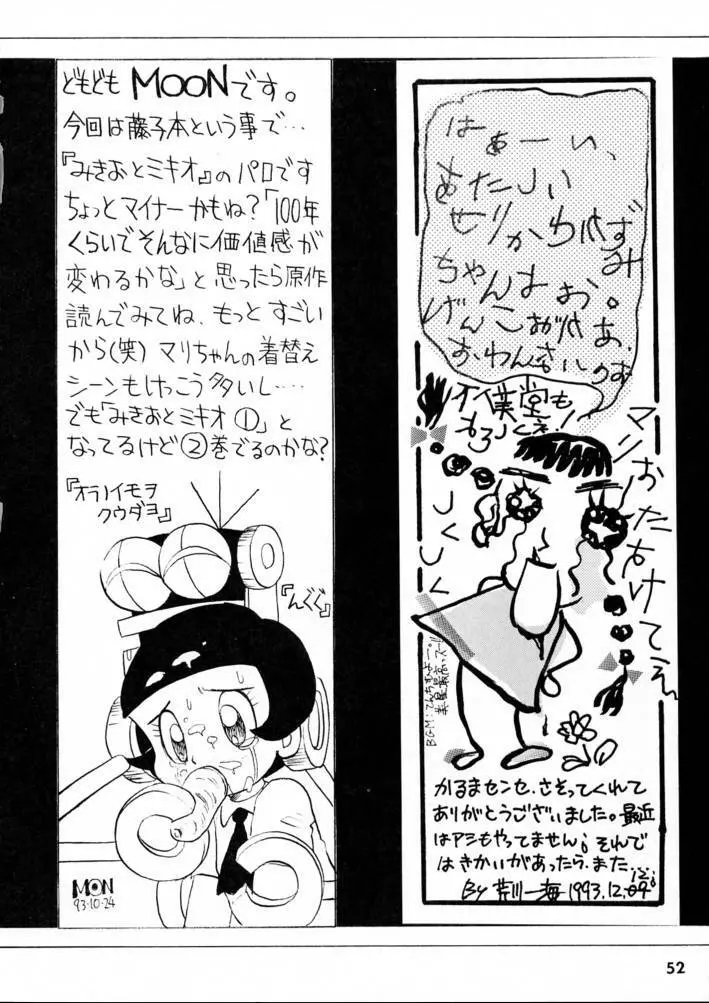 どもども MOONです。
今回は藤子本という事で…
『みきおとミキオ』のパロです
ちょっとマイナーかもね?「100年
くらいでそんなに価値感が
変わるかな」と思ったら原作
読んでみてね、もっとすごい
から(笑) マリちゃんの着替え
シーンもけっこう多いし‥‥
でも「みきおとミキオ①」と
なってるけど②巻でるのかな?
『オラノイモヲ
クウダヨ』
『んぐぐ』
MOON
93·10·24
はぁーい、
あたしい
せりかわ
ちゃんよお。
マリおたすけてぇ
しくしく
かるまセンセ、さそってくれて
ありがとうございました。最近
はアシもやってません。それで
はきかいがあったら、また。
By 荒川一海 1993.12.
52